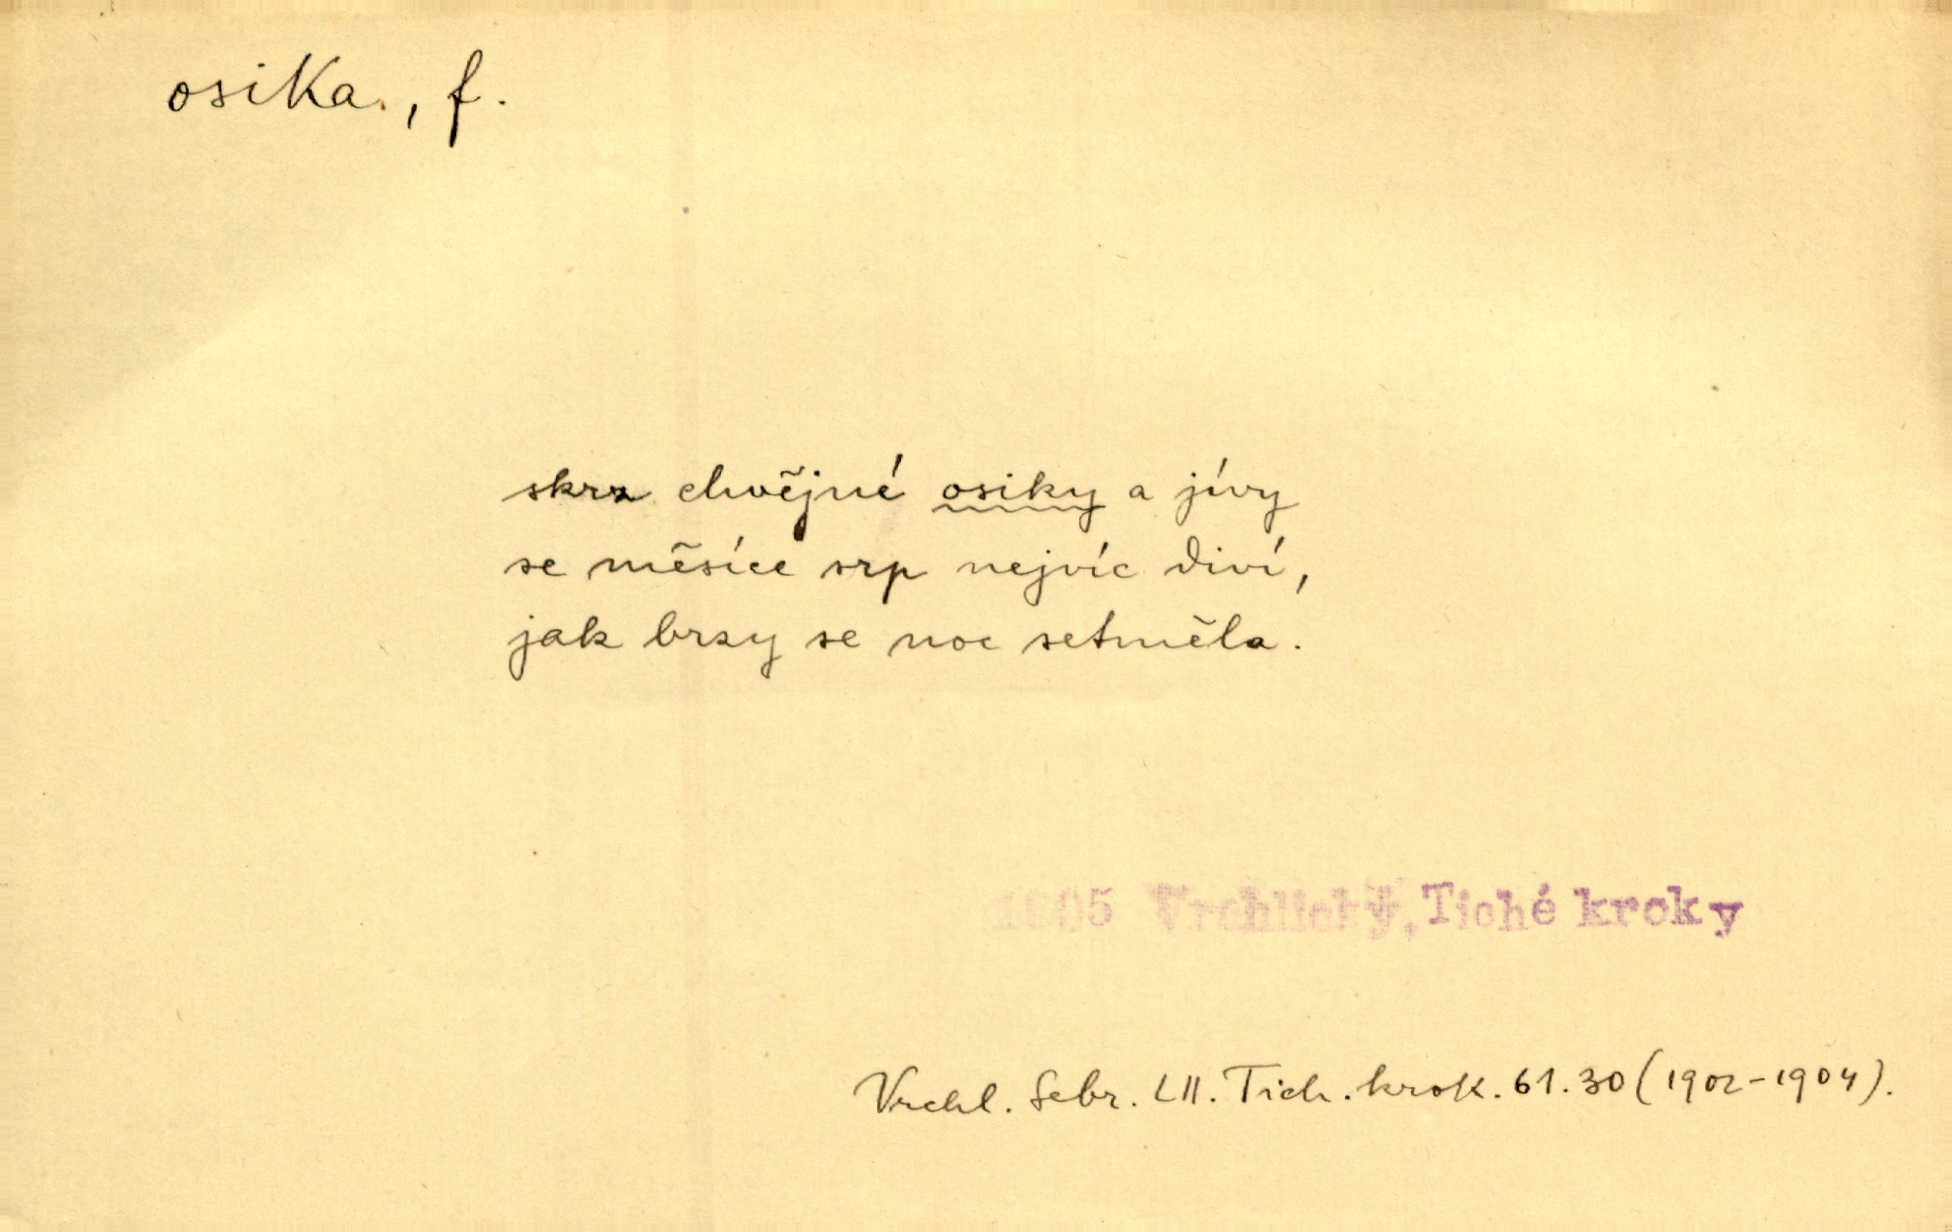 osika., f.
skrz chvějné osiky a jívy
se měsíce srp nejvíc diví,
jak brzy se noc setměla.
1905 Vrchlický, Tiché kroky
Vrchl. Sebr. LII. Tich. krok. 61.30 (1902-1904).